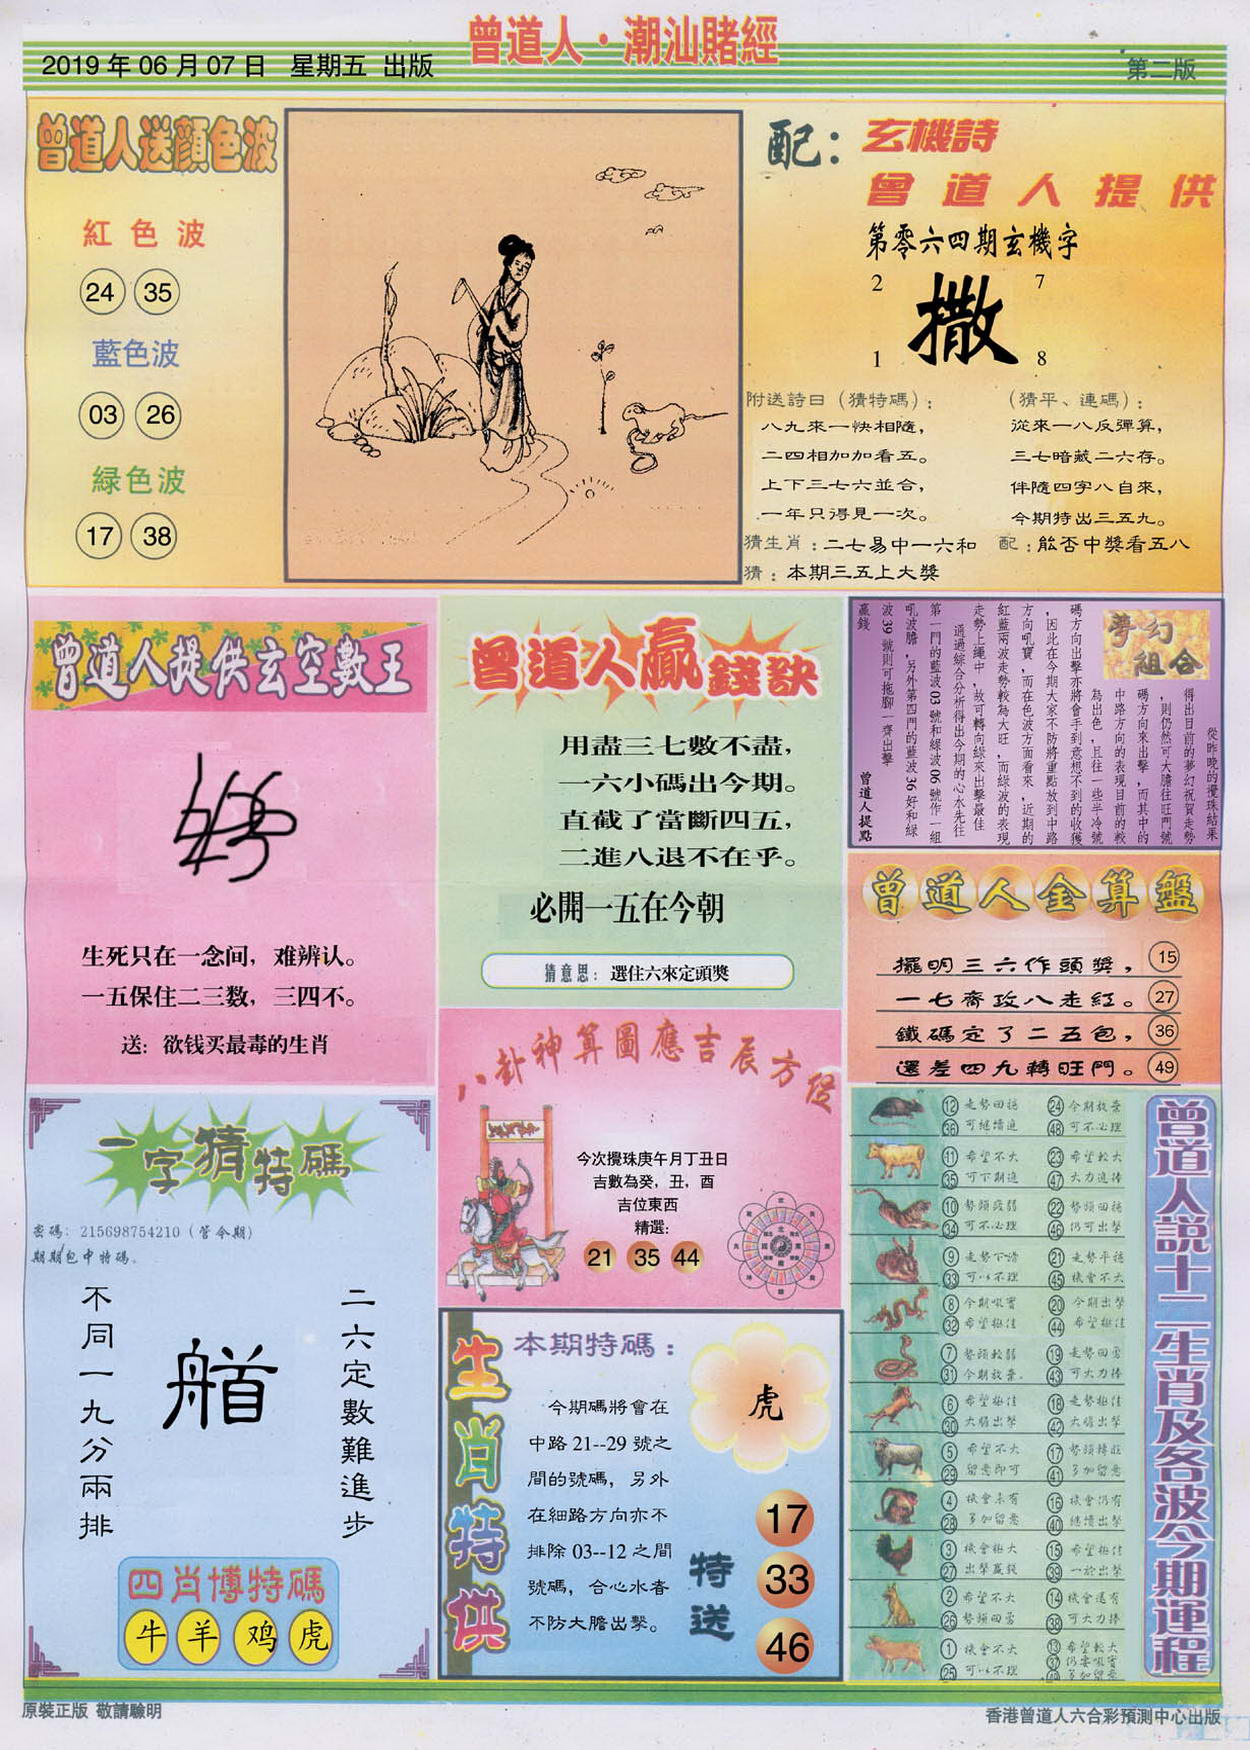 曾道人·潮汕賭經
2019 年 06 月 07 日 星期五 出版
第二版
曾道人送顏色波
紅色波
24 35
藍色波
03 26
緑色波
17 38
配：玄機詩
曾道人提供
第零六四期玄機字
2 7
撒
1 8
附送詩曰（猜特碼）：
八九來一快相隨，
二四相加加看五。
上下三七六並合，
一年只得見一次。
（猜平、連碼）：
從來一八反彈算，
三七暗藏二六存。
伴隨四字八自來，
今期特出三五九。
猜生肖：二七易中一六和 配：能否中獎看五八
猜：本期三五上大獎
曾道人提供玄空數王
生死只在一念间，难辨认。
一五保住二三数，三四不。
送：欲钱买最毒的生肖
曾道人贏錢訣
用盡三七數不盡，
一六小碼出今期。
直截了當斷四五，
二進八退不在乎。
必開一五在今朝
猜意思：選住六來定頭獎
夢幻組合
從昨晚的攪珠結果
得出目前的夢幻祝賀走勢
，則仍然可大膽往旺門號
碼方向來出擊，而其中的
中路方向的表現目前的較
為出色，且往一些半冷號
碼方向出擊亦將會手到意想不到的收獲
，因此在今期大家不防將重點放到中路
方向吼寶，而在色波方面看來，近期的
紅藍兩波走勢較為大旺，而綠波的表現
走勢上繩中，故可轉向綠來出擊最佳
通過綜合分析得出今期的心水先往
第一門的藍波 03 號和綠波 06 號作一組
吼波膽，另外第四門的藍波 36 好和綠
波 39 號則可拖腳一齊出擊
贏錢
曾道人提點
曾道人金算盤
擺明三六作頭獎， 15
一七齊攻八走紅。 27
鐵碼定了二五包， 36
還差四九轉旺門。 49
八卦神算圖應吉辰方位
今次攪珠庚午月丁丑日
吉數為癸，丑，酉
吉位東西
精選：
21 35 44
一字猜特碼
密碼：215698754210（管今期）
期期包中特碼。
二六定數難進步
不同一九分兩排
四肖博特碼
牛 羊 鸡 虎
生肖特供
本期特碼：
虎
今期碼將會在
中路 21--29 號之
間的號碼，另外
在細路方向亦不
排除 03--12 之間
號碼，合心水者
不防大膽出擊。
特送
17
33
46
曾道人説十二生肖及各波今期運程
12 走勢回穩 24 今期放棄
36 可繼續追 48 可不必理
11 希望不大 23 希望較大
35 可下期追 47 大力追捧
10 勢頭疲弱 22 勢頭回穩
34 可不必理 46 仍可出擊
9 走勢下滑 21 走勢平穩
33 可以不理 45 機會不大
8 今期吼實 20 今期出擊
32 希望極佳 44 希望極佳
7 勢頭較弱 19 走勢回勇
31 今期放棄. 43 可大力捧
6 希望極佳 18 走勢極佳
30 大膽出擊 42 大膽出擊
5 希望不大 17 勢頭轉旺
29 留意即可 41 多加留意
4 機會未有 16 機會仍有
28 多加留意 40 繼續出擊
3 機會極大 15 希望極佳
27 出擊贏錢 39 一於出擊
2 希望不大 14 機會還有
26 勢頭回勇 38 可大力捧
1 機會不大 13 希望較大
25 可以不理 37 仍要吼實
49 多加留意
原裝正版 敬請驗明
香港曾道人六合彩預測中心出版